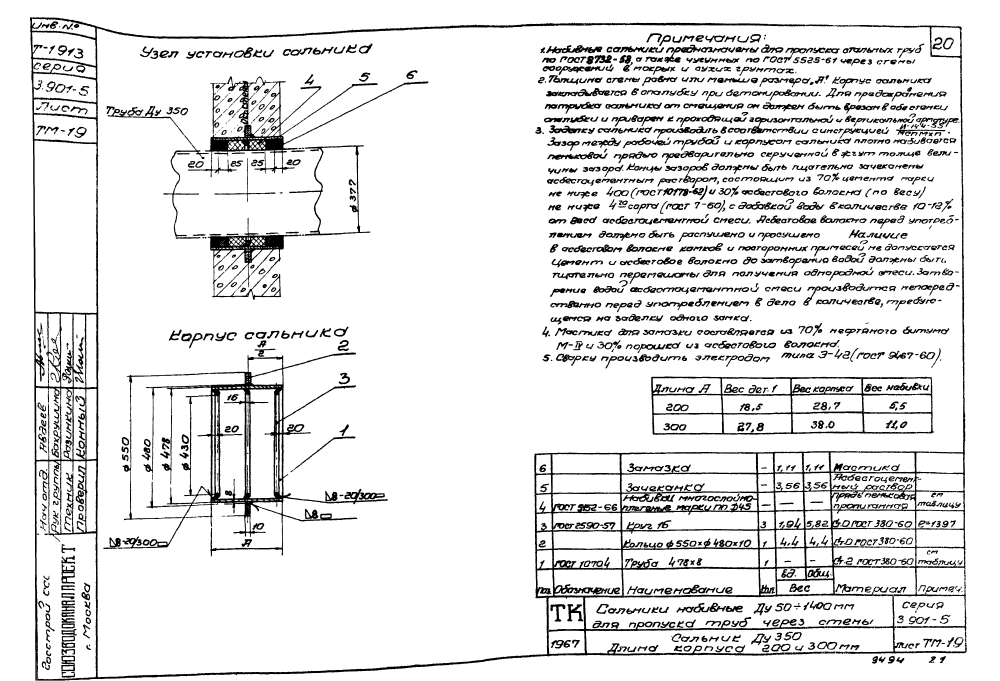 Инв. №
Т-1913
серия
3.901-5
Лист
ТМ-19
Узел установки сальника
4
5
6
Труба Ду 350
20
25
25
20
ф 377
Корпус сальника
А
2
2
3
1
16
20
20
ф 550
ф 480
ф 478
ф 430
8
10
А
8-20/300
8
8-20/300
20
Примечания:
1. Набивные сальники предназначены для пропуска стальных труб
по ГОСТ 8732-58, а также чугунных по ГОСТ 5525-61 через стены
сооружений в мокрых и сухих грунтах.
2. Толщина стены равна или меньше размера „А". Корпус сальника
закладывается в опалубку при бетонировании. Для предохранения
патрубка сальника от смещения он должен быть врезан в обе стенки
опалубки и приварен к проходящей горизонтальной и вертикальной арматуре.
3. Заделку сальника производить в соответствии с инструкцией
Зазор между рабочей трубой и корпусом сальника плотно набивается
пеньковой прядью предварительно скрученной в жгут толще вели-
чины зазора. Концы зазоров должны быть тщательно зачеканены
асбестоцементным раствором, состоящим из 70% цемента марки
не ниже 400 (ГОСТ 10178-62) и 30% асбестового волокна (по весу)
не ниже 4го сорта (ГОСТ 7-60), с добавкой воды в количестве 10-12%
от веса асбестоцементной смеси. Асбестовое волокно перед употреб-
лением должно быть распушено и просушено Наличие
в асбестовом волокне комков и посторонних примесей не допускается
Цемент и асбестовое волокно до затворения водой должны быть
тщательно перемешаны для получения однородной смеси. Затво-
рение водой асбестоцементной смеси производится непосред-
ственно перед употреблением в дело в количестве, требую-
щемся на заделку одного замка.
4. Мастика для замазки составляется из 70% нефтяного битума
М-IV и 30% порошка из асбестового волокна.
5. Сварку производить электродом типа Э-42 (ГОСТ 9467-60).
Длина А Вес дет. 1 Вес корпуса Вес набивки
200 18,5 28,7 5,5
300 27,8 38.0 11,0
6 Замазка – 1,11 1,11 Мастика
5 Зачеканка – 3,56 3,56 Асбестоцемент-ный раствор
4 ГОСТ 5152-66 Набивка многослойно-плетеная марки ПП Д45 – – Прядь пеньковая пропитанная см таблицу
3 ГОСТ 2590-57 Круг 16 3 1,94 5,82 Ст.0 ГОСТ 380-60 ℓ=1397
2 Кольцо ф 550×ф 480×10 1 4,4 4,4 Ст.0 ГОСТ 380-60
1 ГОСТ 10704 Труба 478×8 1 – – Ст.2 ГОСТ 380-60 см таблицу
поз. Обозначение Наименование Кол. ед. Общ. Вес Материал Примеч.
ТК
1967
Сальники набивные Ду 50÷1400 мм
для пропуска труб через стены
серия
3 901-5
Сальник Ду 350
Длина корпуса 200 и 300 мм
лист ТМ-19
9494 21
Нач отд. Авдеев
Рук группы Вахрушина
Техник Разинкина
Проверил Конный
Госстрой ссс
СОЮЗВОДОКАНАЛПРОЕКТ
г. Москва